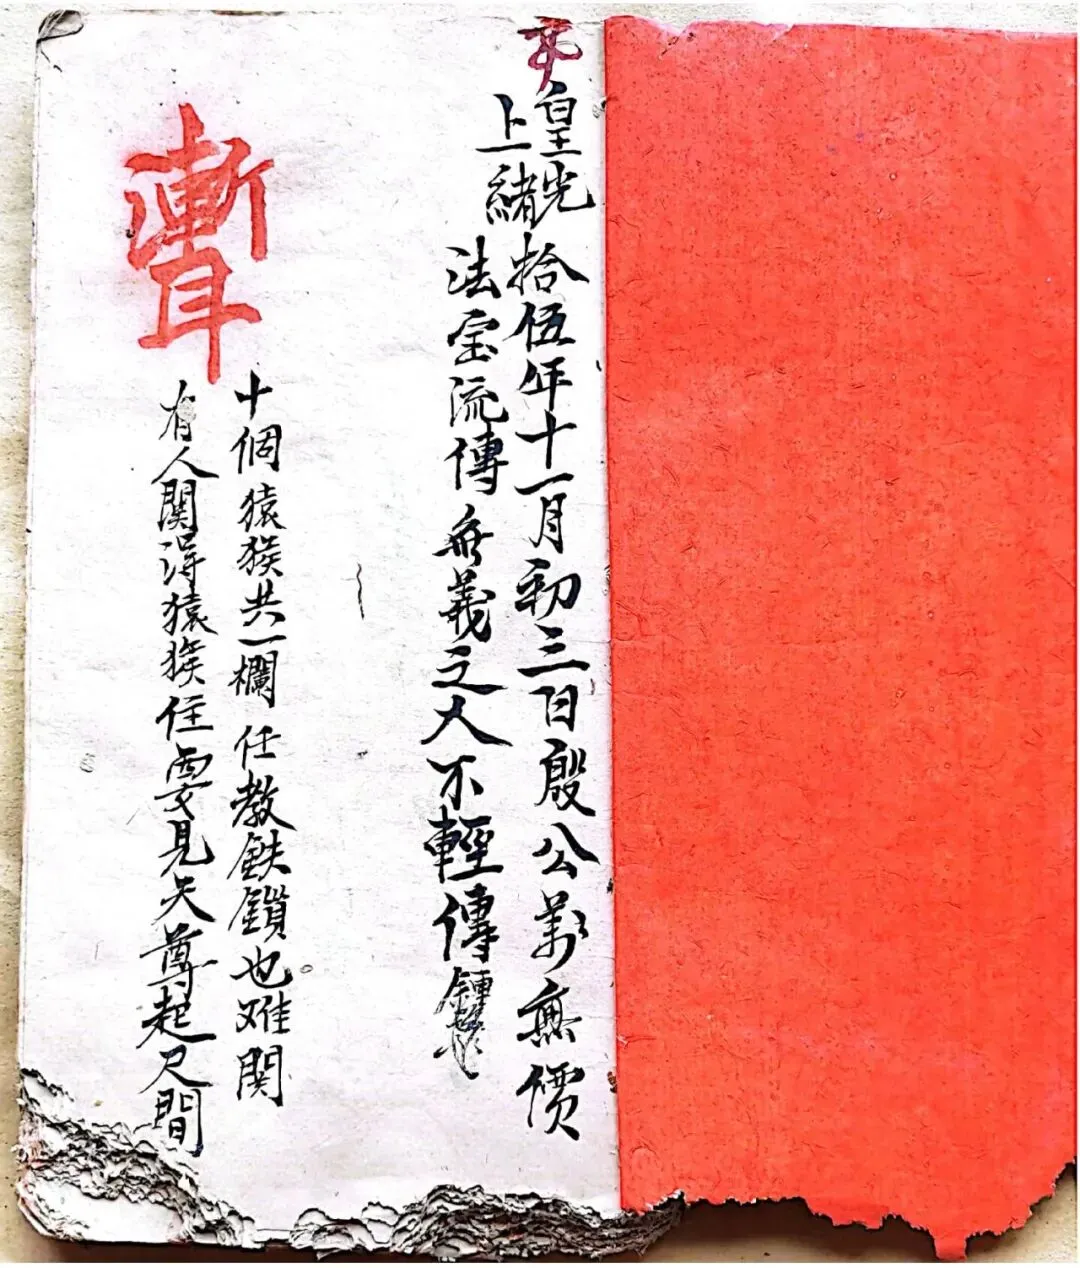 皇上光緒拾伍年十一月初三日殷公萬無價
法宝流傳無義之人不輕傳
十個猿猴共一欄任教鉄鎖也难関
有人関得猿猴住要見天尊起尺間